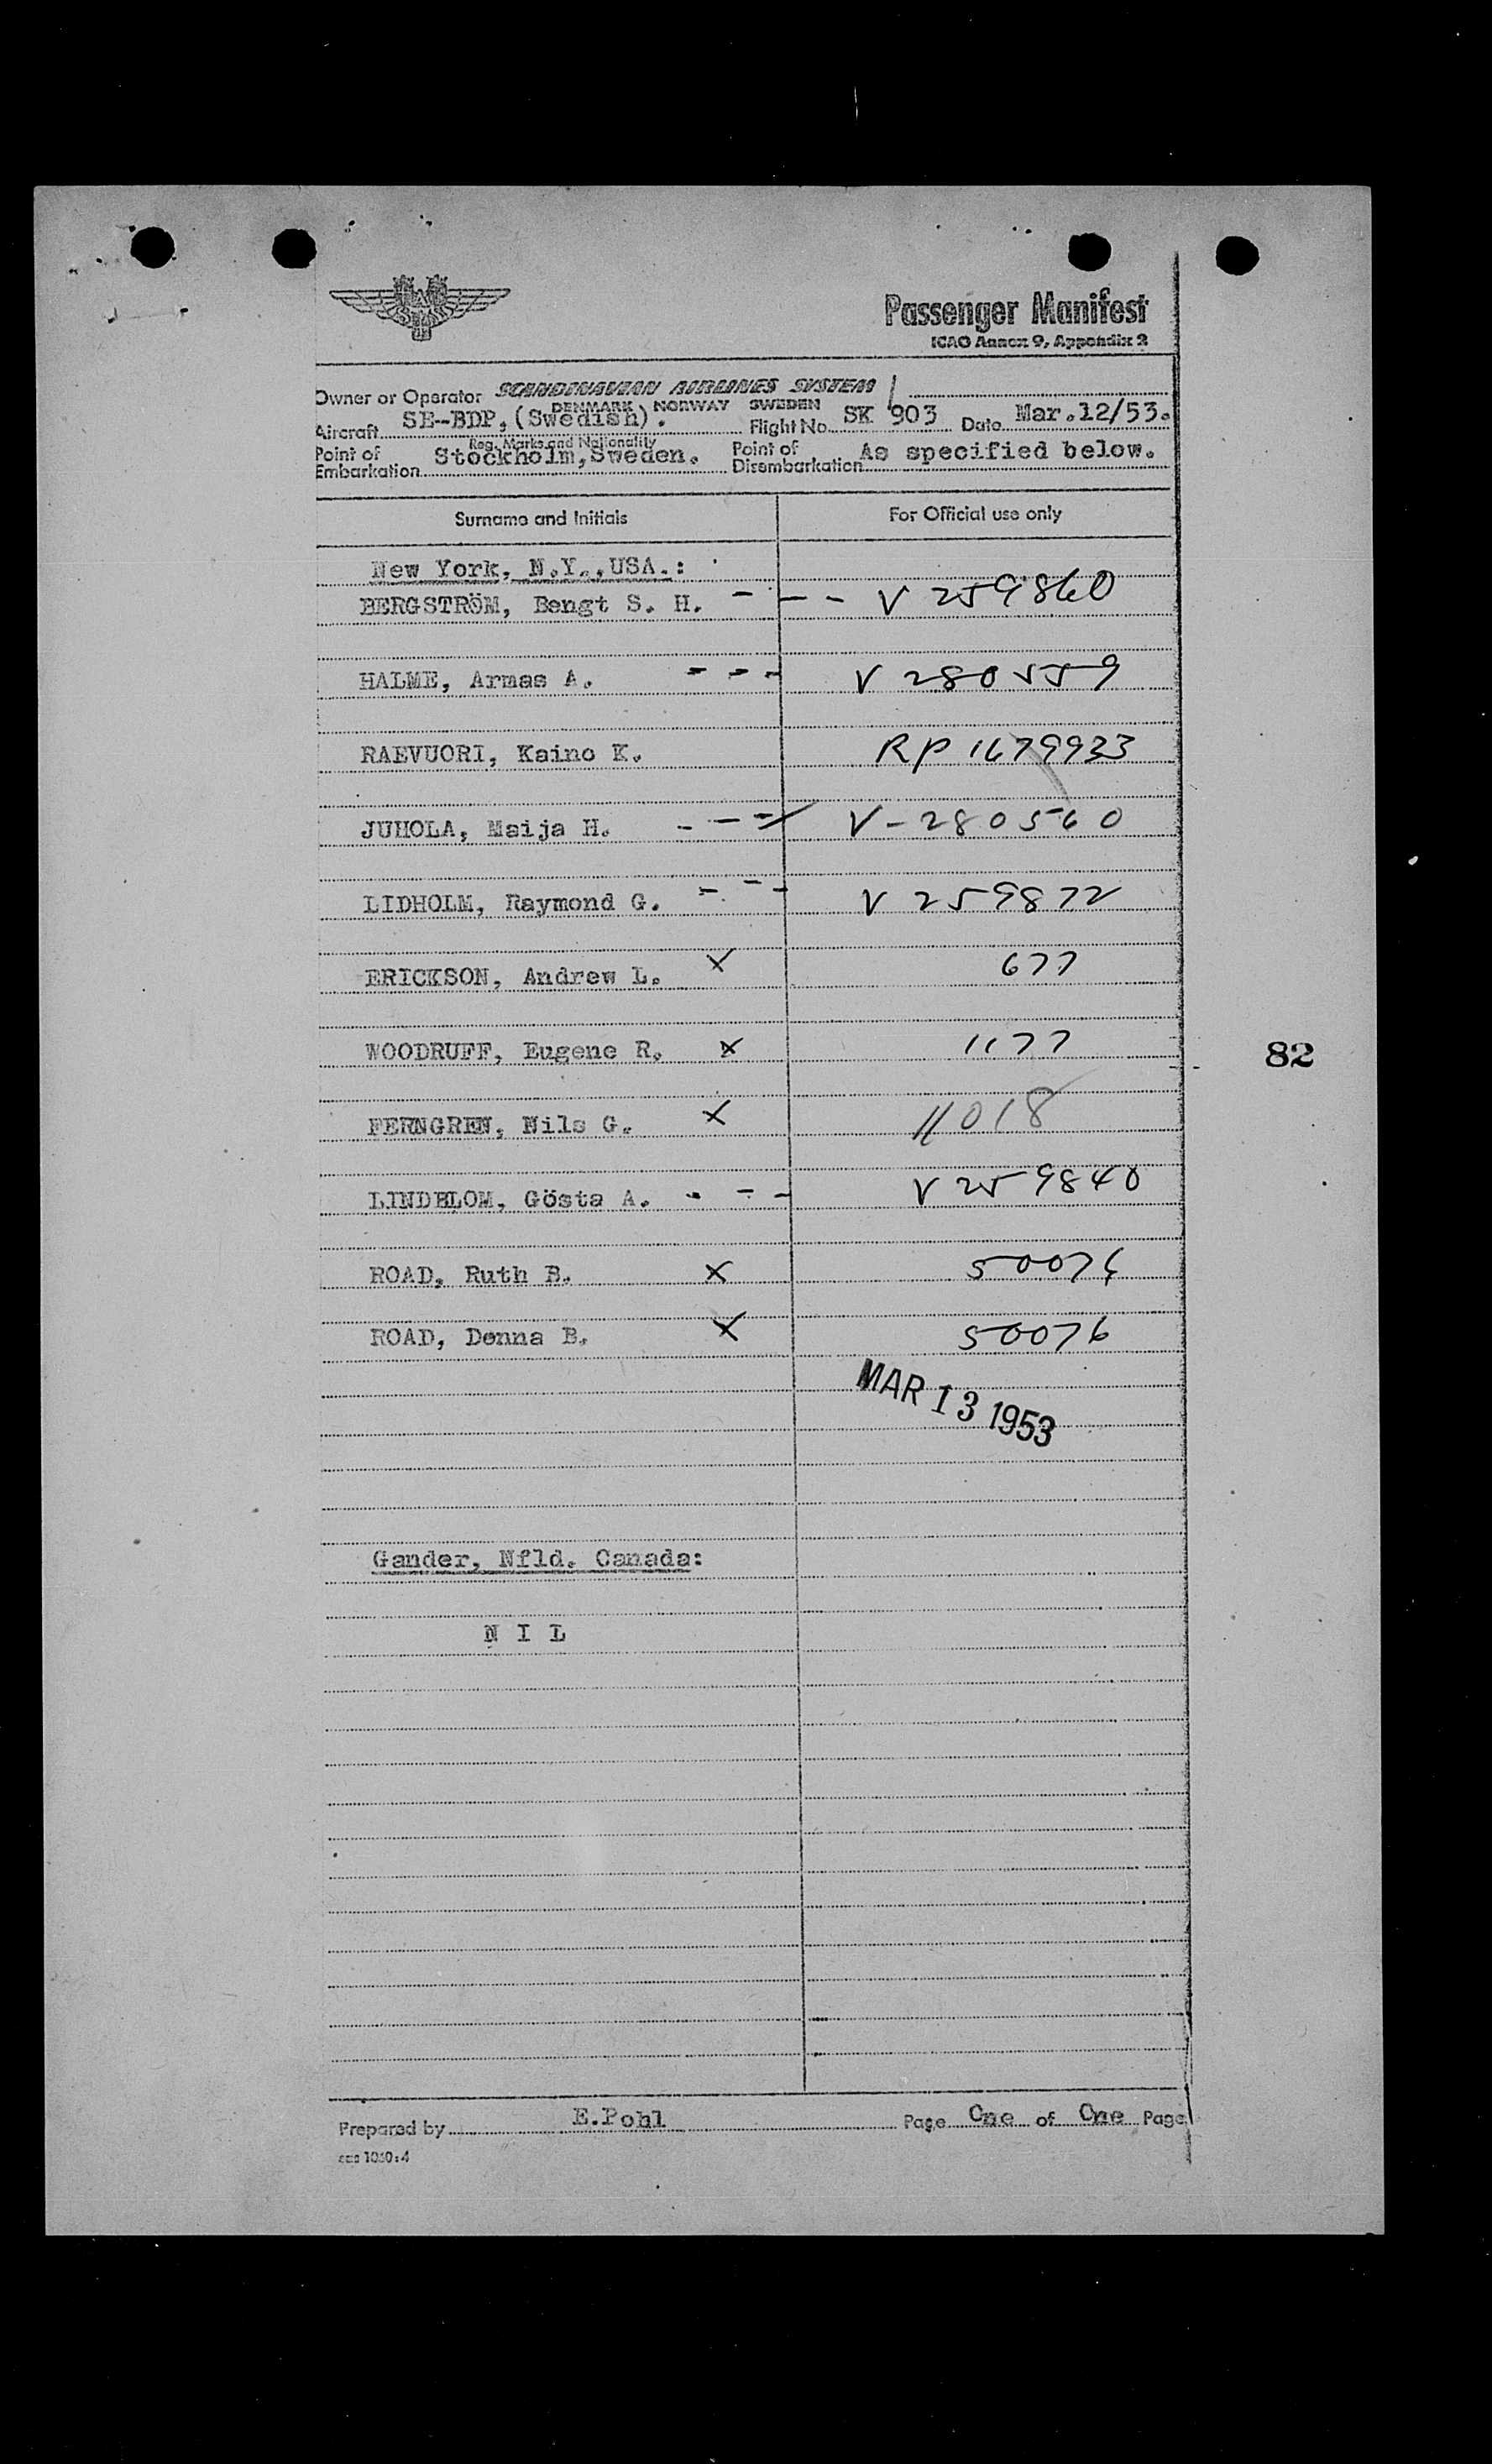 SAS
Passenger Manifest
ICAO Annex 9, Appendix 2
Owner or Operator SCANDINAVIAN AIRLINES SYSTEM
DENMARK NORWAY SWEDEN
Aircraft SE-BDP, (Swedish). Flight No. SK 903 Date Mar.12/53.
Reg. Marks and Nationality
Point of Embarkation Stockholm, Sweden. Point of Disembarkation As specified below.
Surname and Initials For Official use only
New York, N.Y.,USA.:
BERGSTRÖM, Bengt S. H. - - - - V 259860
HALME, Armas A. - - - V 280559
RAEVUORI, Kaino K. RP 1679933
JUHOLA, Maija H. - - - V-280560
LIDHOLM, Raymond G. - - - V 259872
ERICKSON, Andrew L. X 677
WOODRUFF, Eugene R. X 1177
82
FERNGREN, Nils G. X 11018
LINDBLOM, Gösta A. - - - V 259840
ROAD, Ruth B. X 50076
ROAD, Donna B. X 50076
MAR 13 1953
Gander, Nfld. Canada:
N I L
Prepared by E.Pohl Page One of One Page